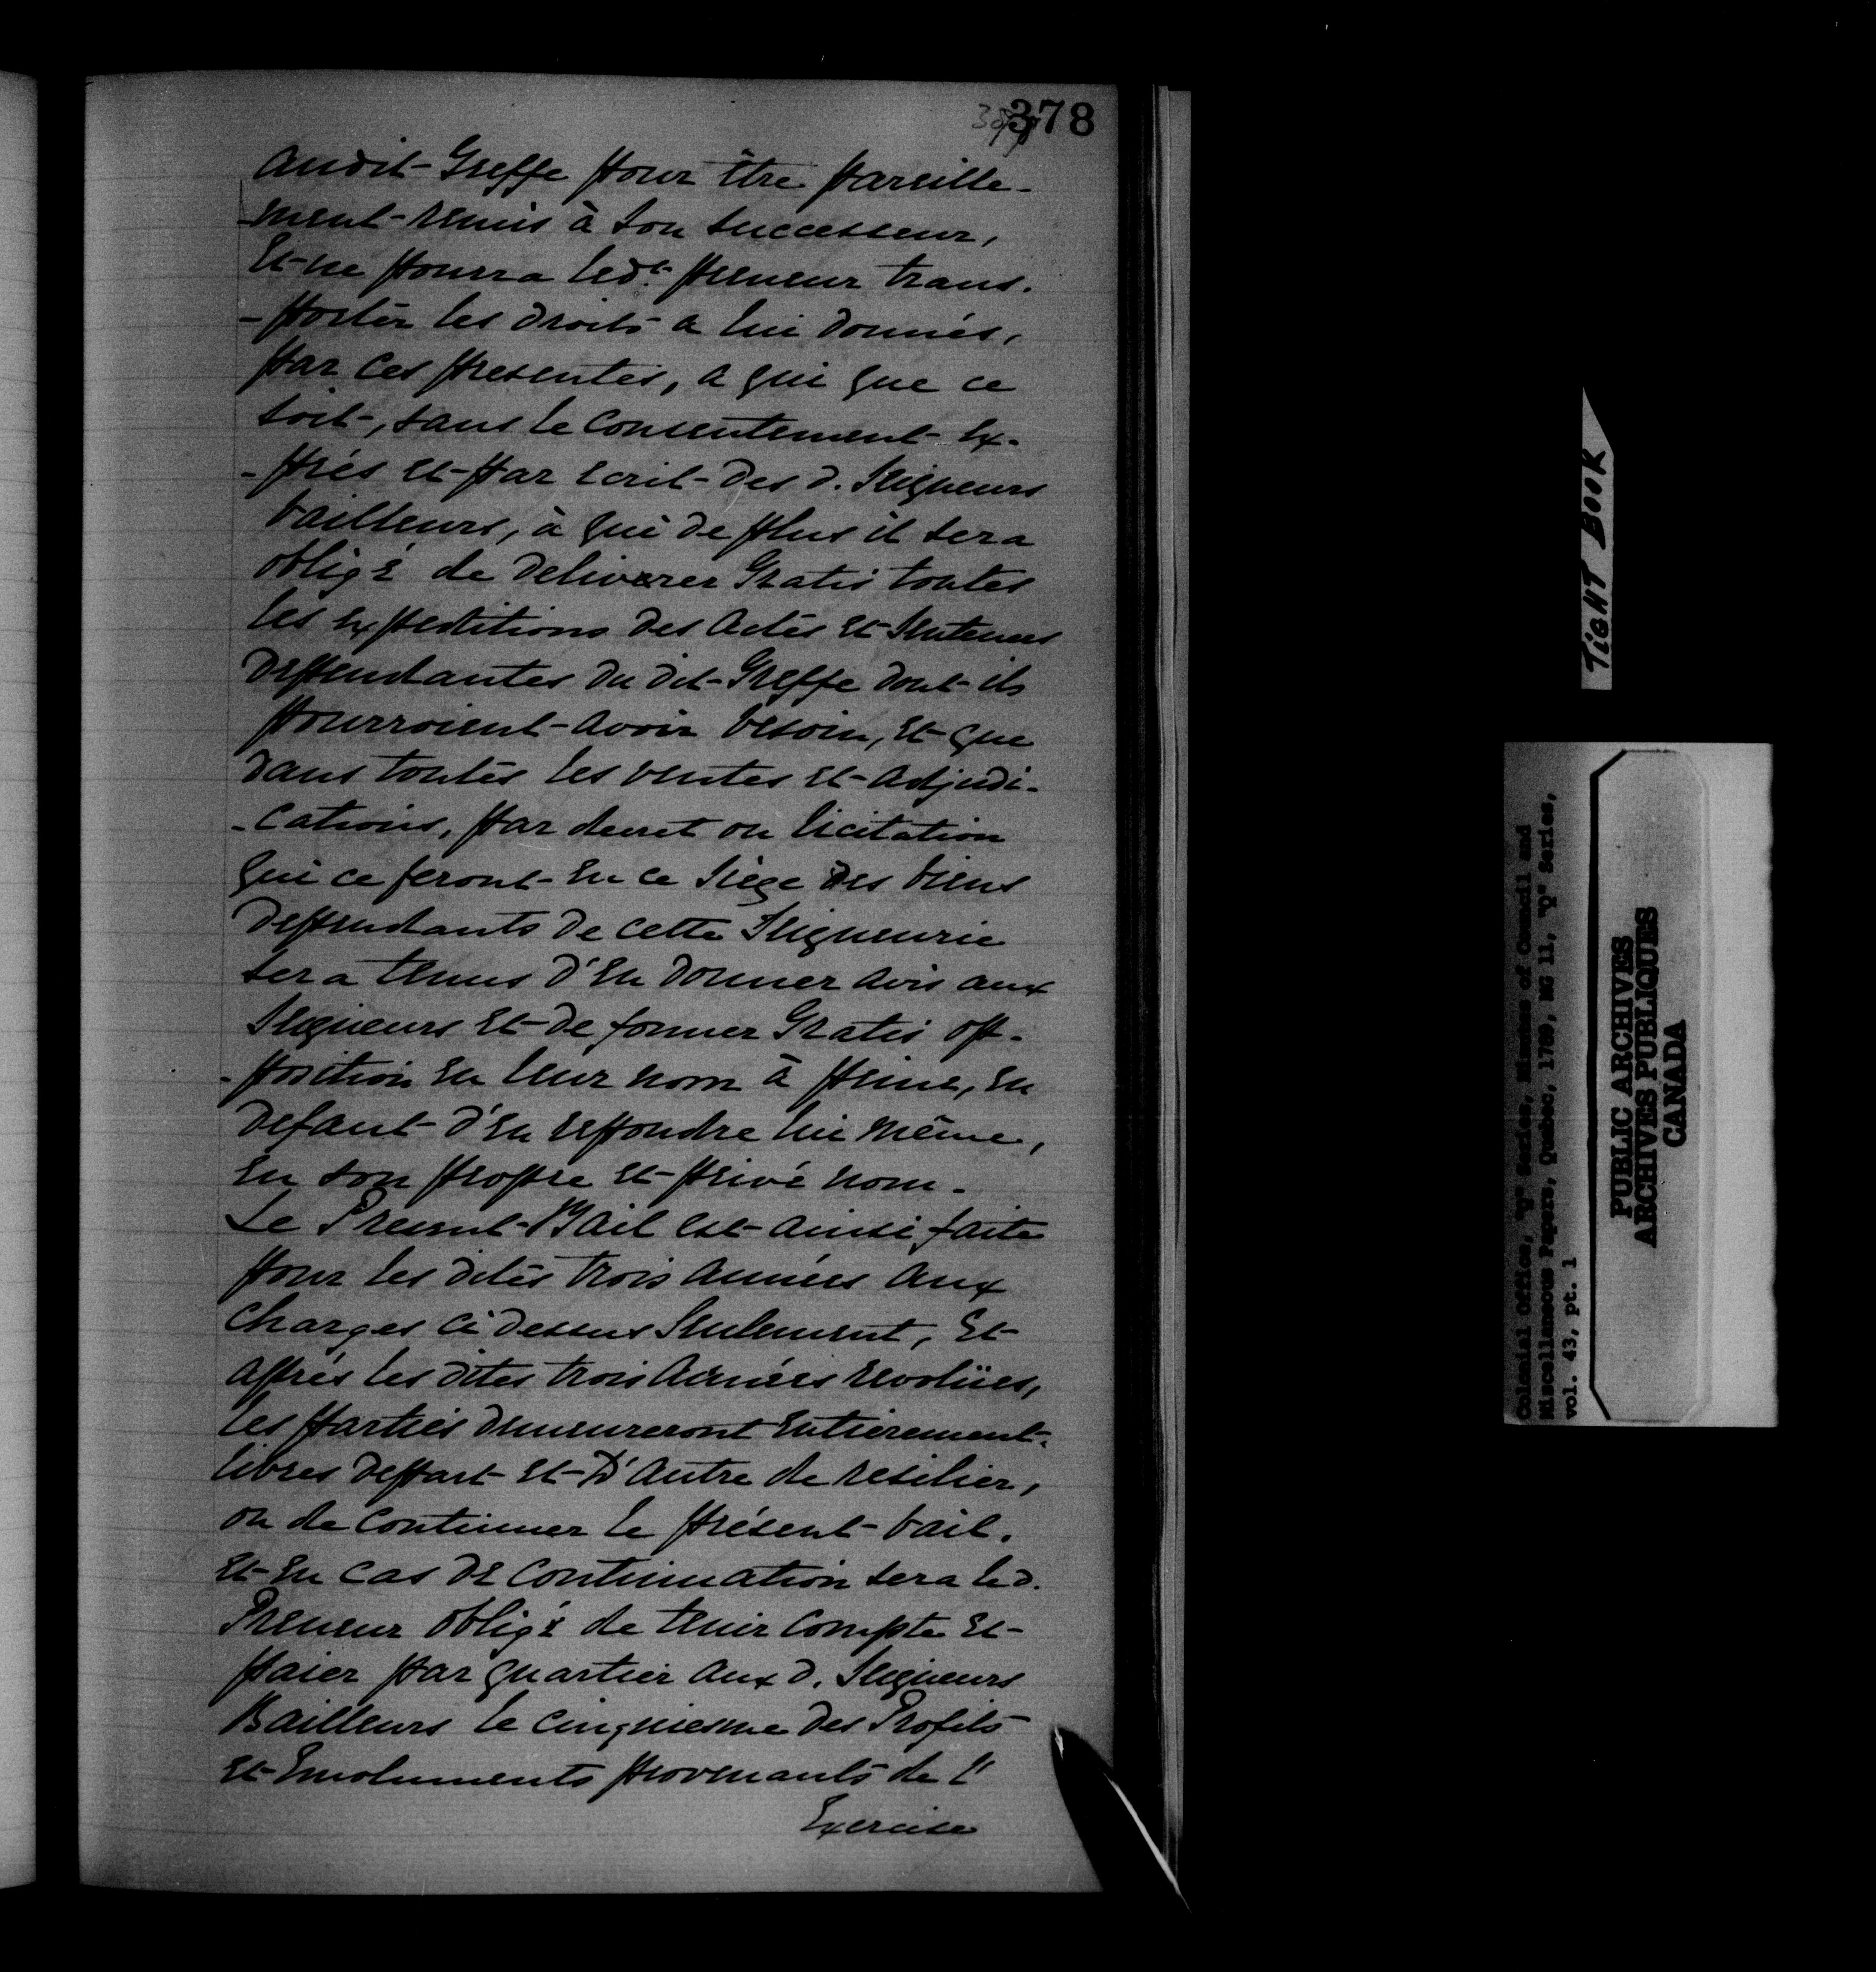 378
audit Greffe pour être pareille-
-ment remis à son successeur,
Et ne pourra led.t preneur trans-
-porter les droits a lui donnés,
par ces presentes, a qui que ce
soit, sans le consentement Ex-
-près et par Ecrit des d. Seigneurs
bailleurs, à qui de plus il sera
obligé de deliverer Gratis toutes
les Expeditions des Actes et Sentences
Dependantes du dit Greffe dont ils
pourroient avoir besoin, et que
dans toutes les ventes et adjudi-
-cations, par decret ou licitation
qui ce feront en ce Siege des biens
Dependants de cette Seigneurie
sera tenus d'En donner avis aux
Seigneurs et de former Gratis op-
-position en leur nom à peine, en
Defaut d'En repondre lui même,
En son propre et privé nom.
Le Present Bail est ainsi faite
pour les dites trois années aux
Charges ci dessus Seulement, Et
après les dites trois Années revolües,
les parties demeureront Entierement
libres depart et D'Autre de resilier,
ou de continuer le présent bail.
Et En Cas de Continuation sera le d.
Preneur obligé de tenir compte et
paier par quartier aux d. Seigneurs
Bailleurs le cinquiesme des Profits
et Emoluments provenants de l'
Exercise
TIGHT BOOK
Colonial Office, "Q" Series, Minutes of Council and
Miscellaneous Papers, Quebec, 1789, MG 11, "Q" Series,
vol. 43, pt. 1
PUBLIC ARCHIVES
ARCHIVES PUBLIQUES
CANADA